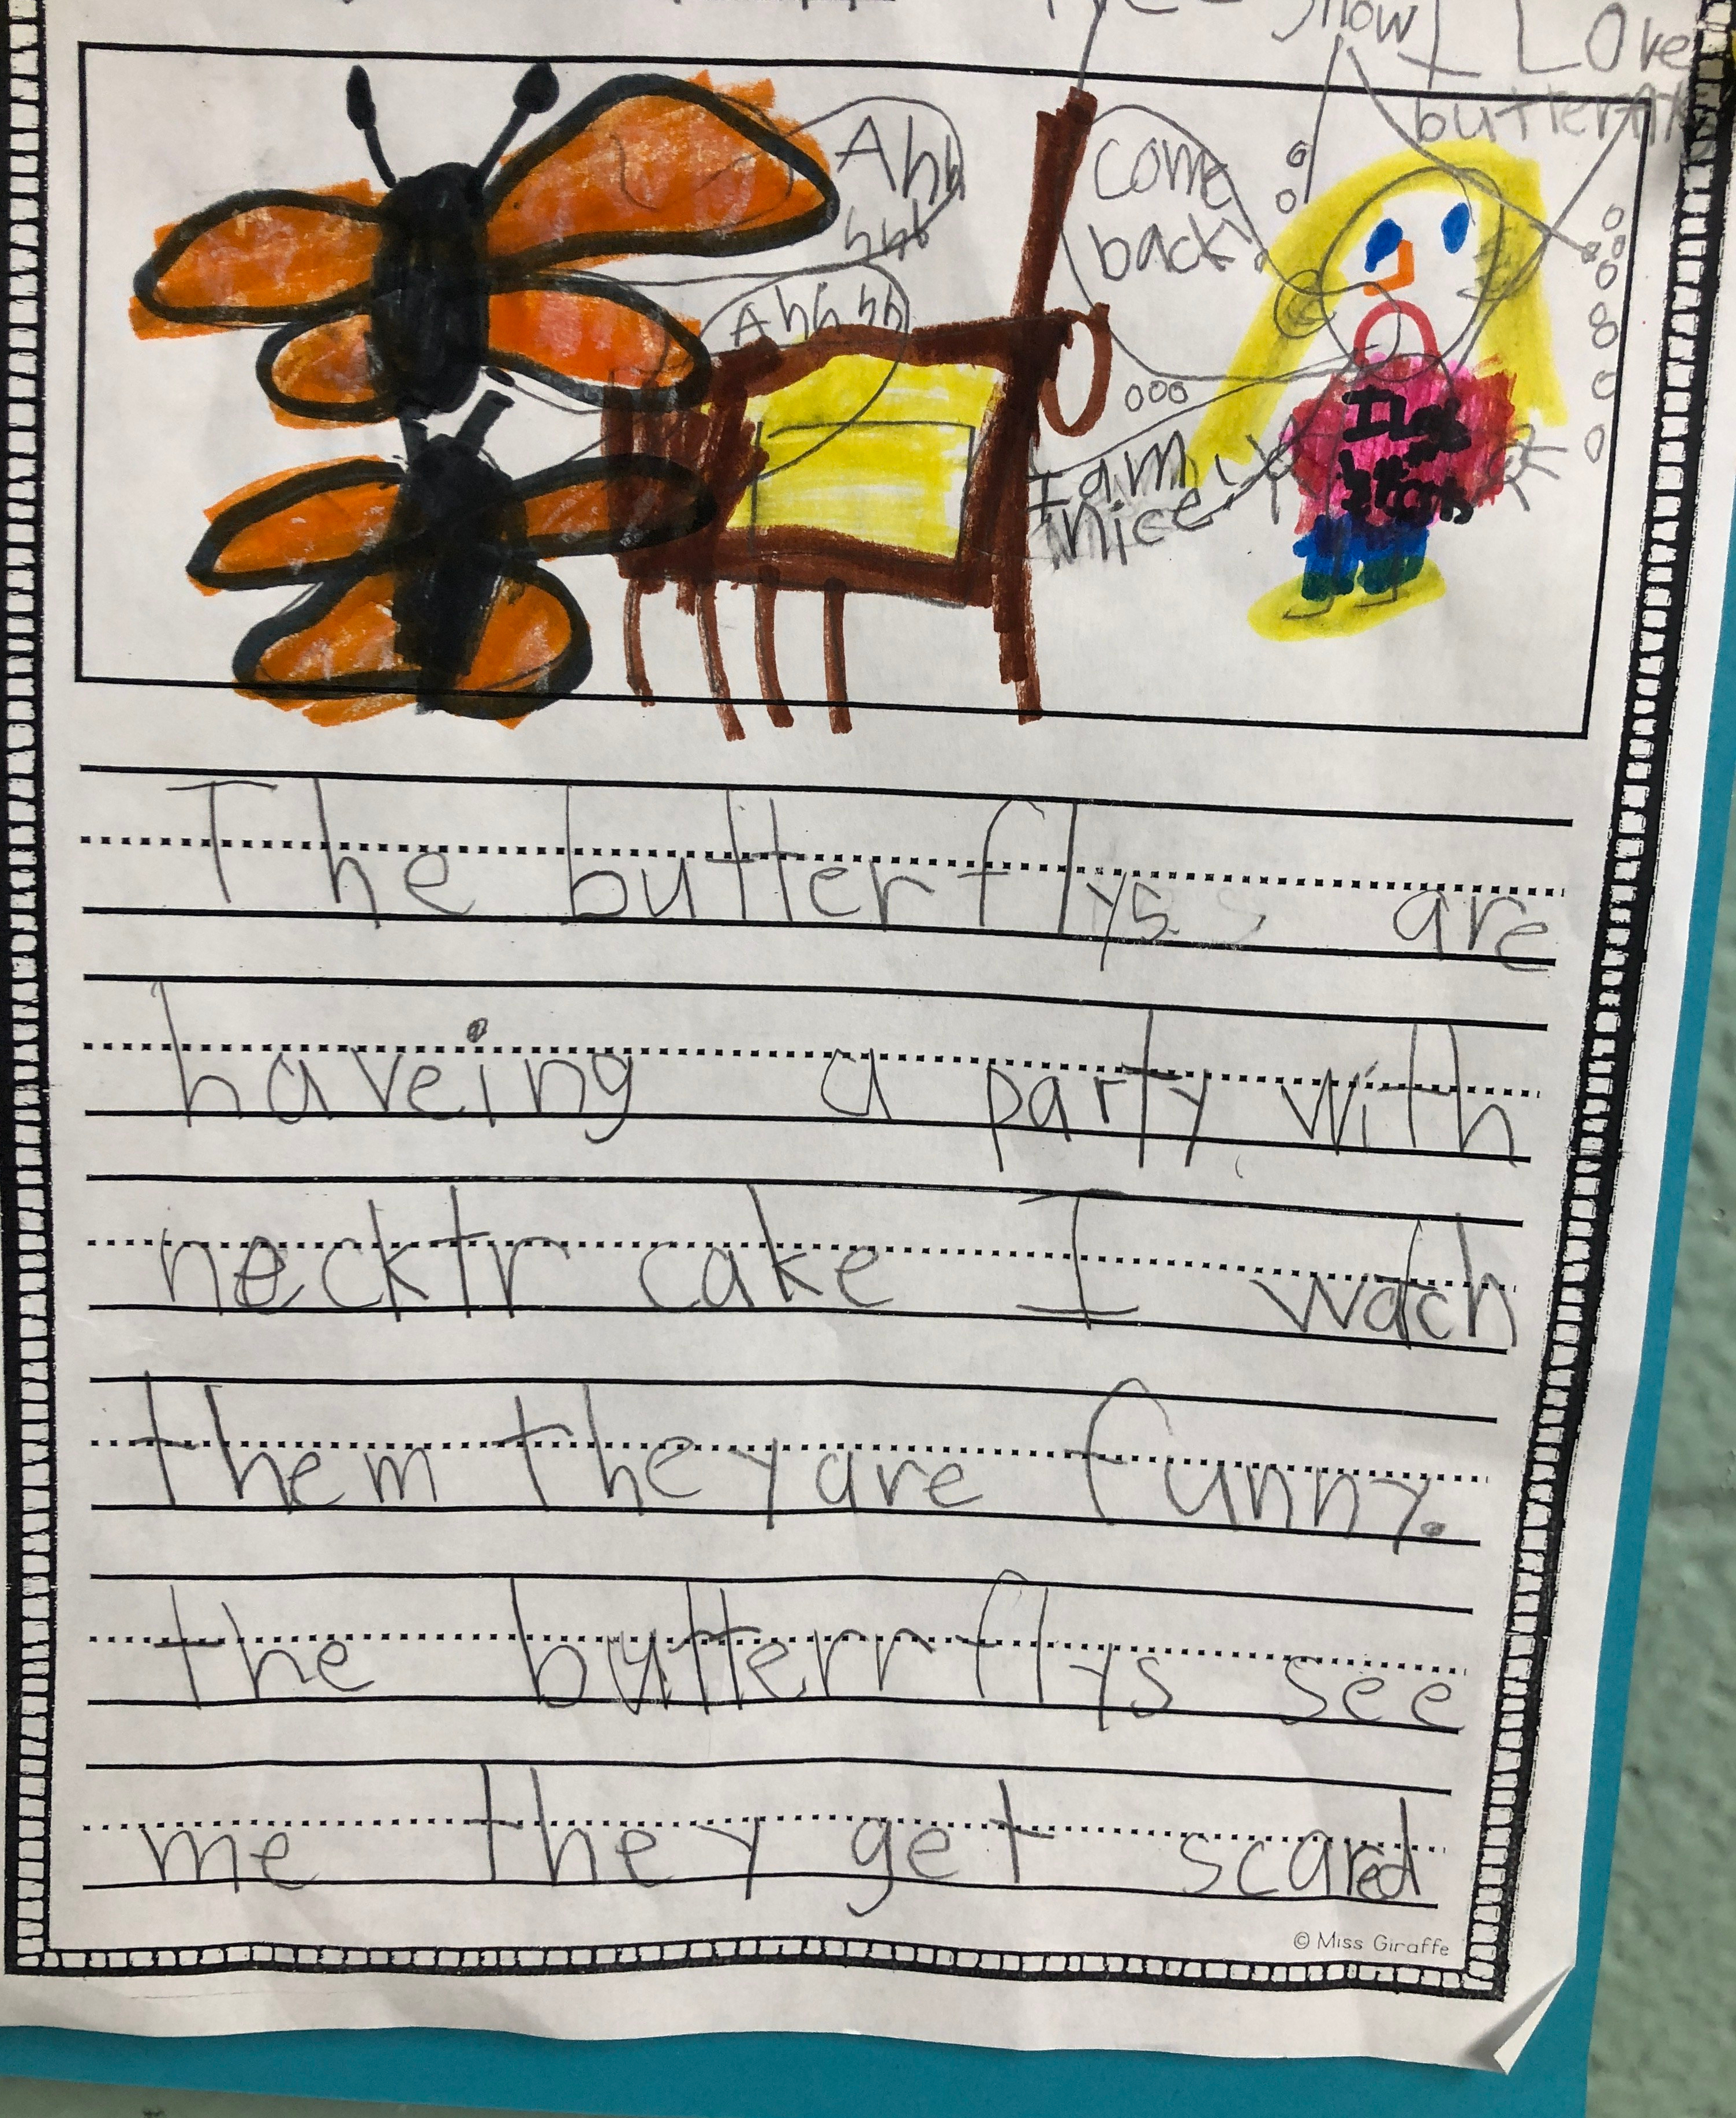 snow
I Love
butterfly
Ahh
hhh
come
back!
Ahhhh
I am
nice
I
The butterflys are
haveing a party with
necktr cake I wach
them they are funny.
the butterrflys see
me they get scared
© Miss Giraffe